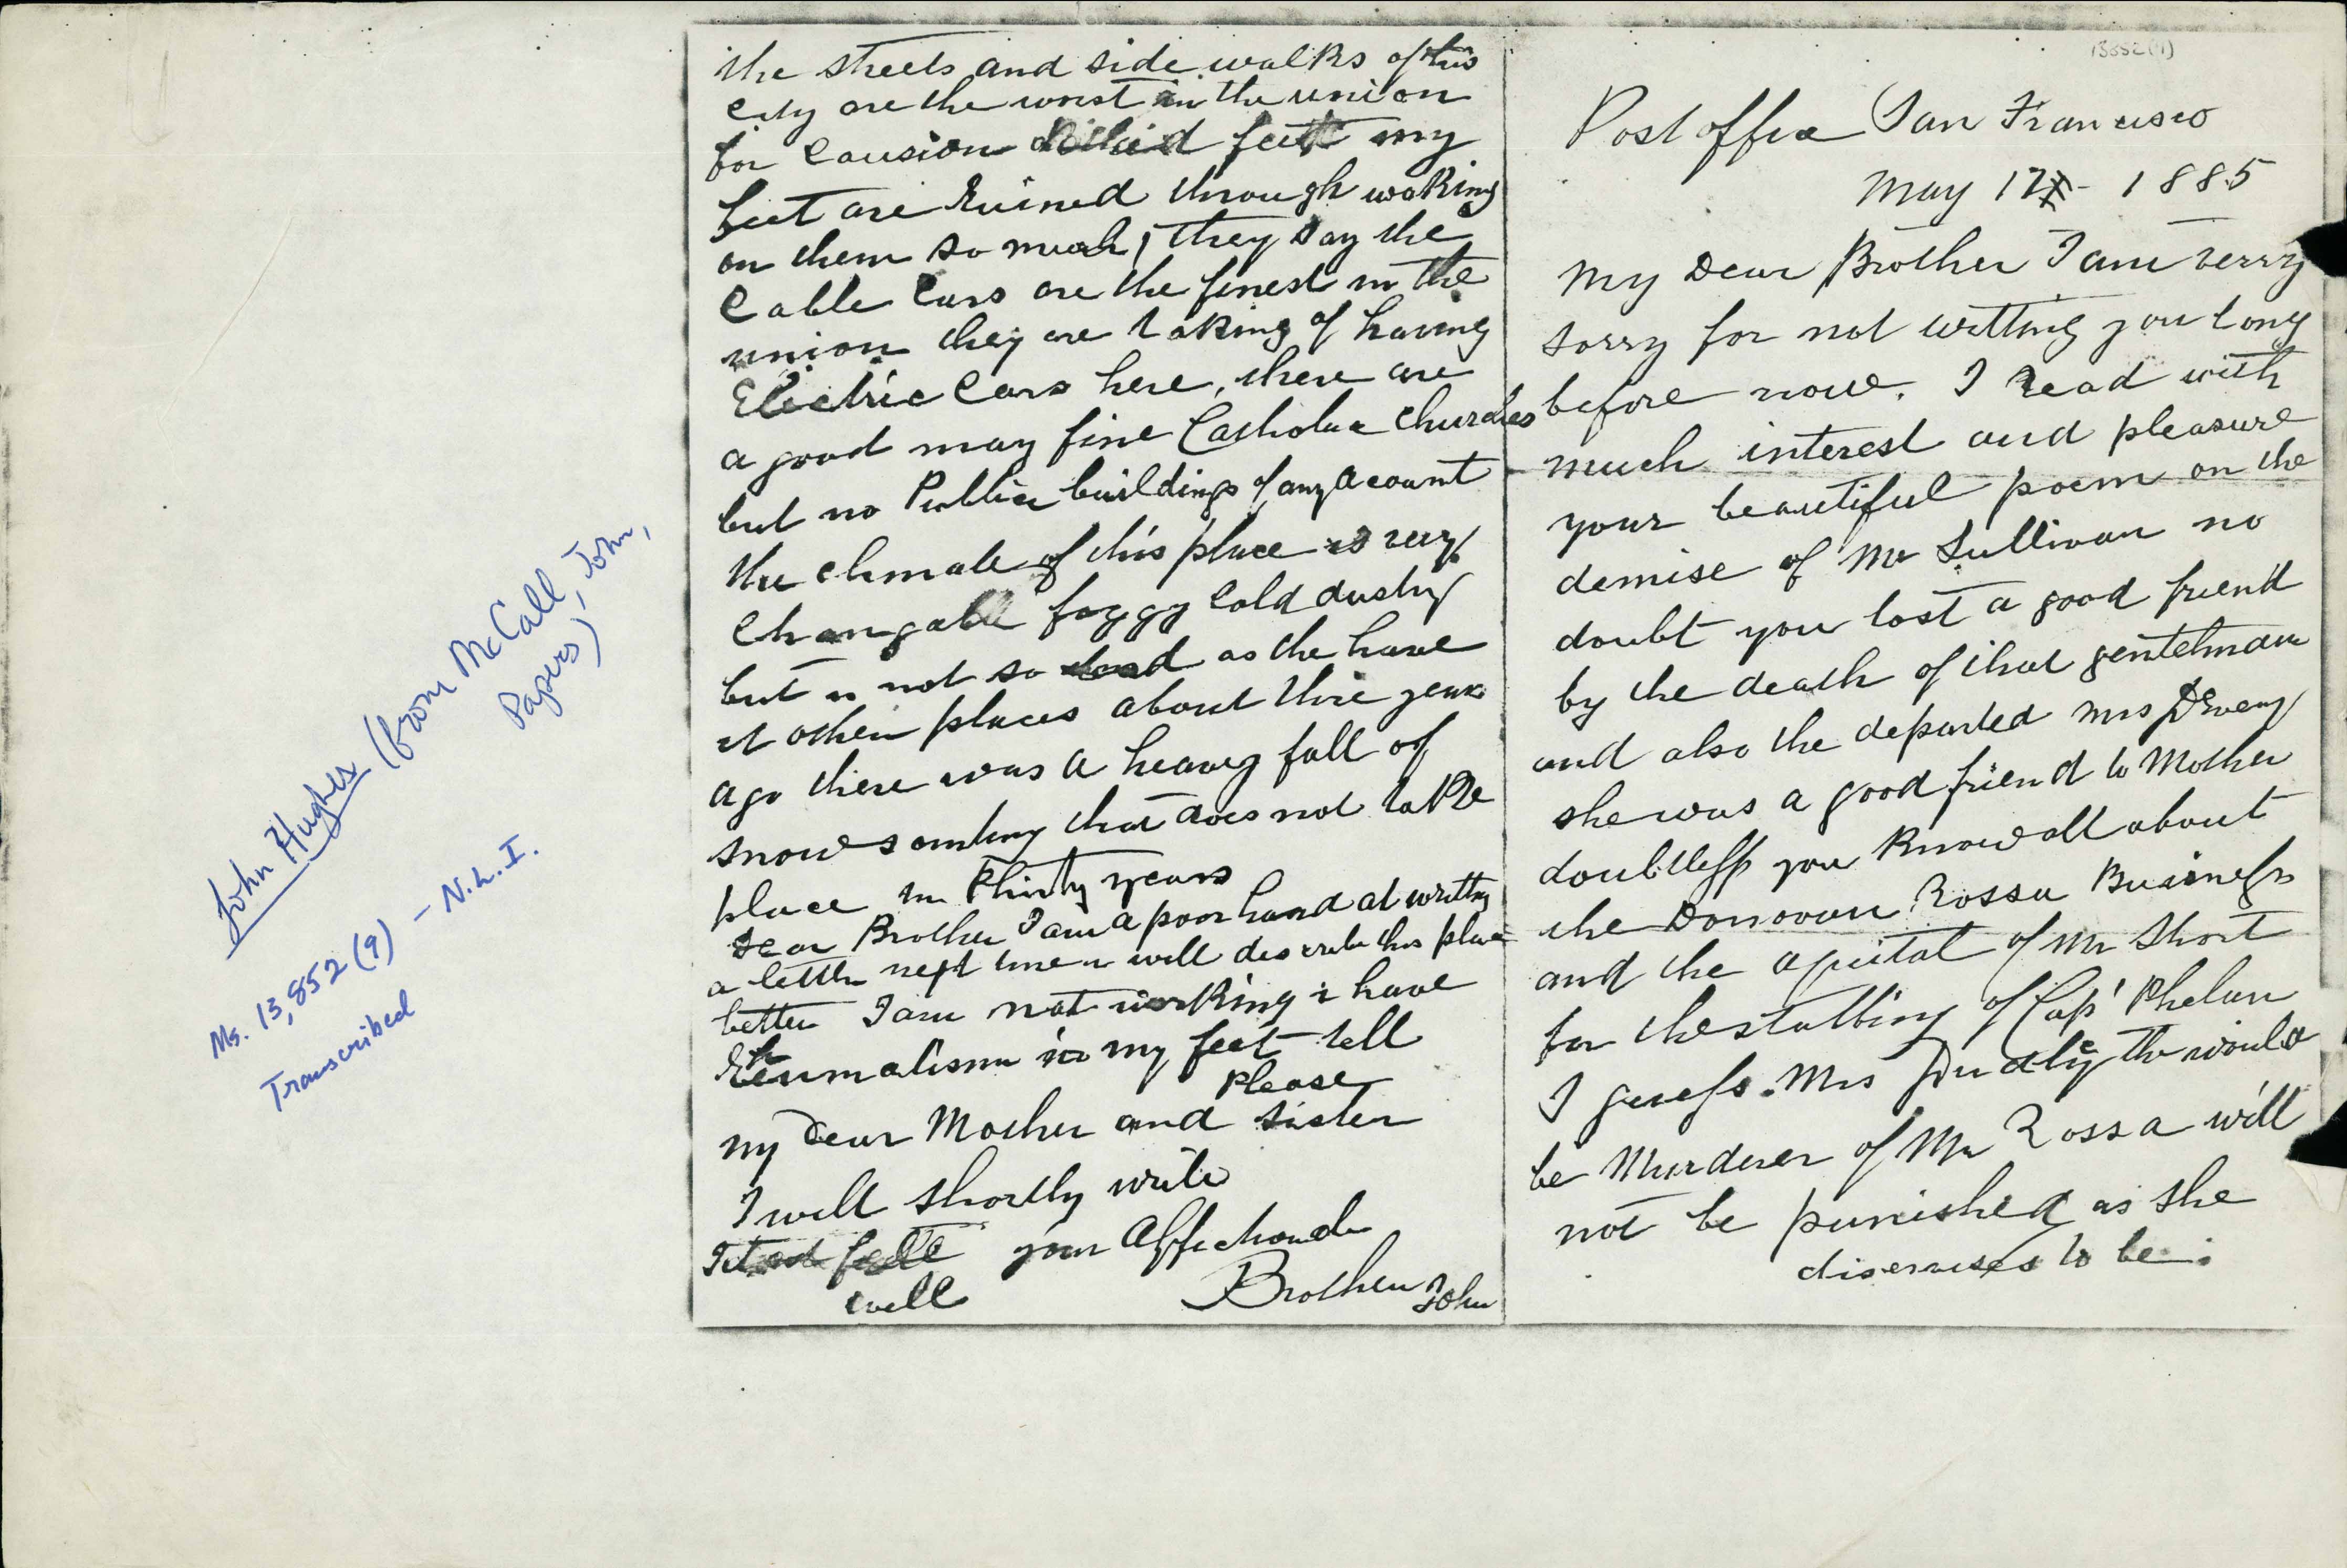 John Hughes (from McCall, John,
Papers)
Ms. 13,852 (9) - N.L.I.
Transcribed
the streets and side walks of this
City are the worst in the union
for Causion feet my
feet are Ruined through walking
on them so much, they say the
Cable Cars are the finest in the
union they are taking of having
Electric Cars here, there are
a good many fine Catholic Churches
but no Public buildings of any acount
the climate of this place is very
Changable foggy Cold dusty
but is not so as the have
it other places about thre years
ago there was a heavy fall of
snow somting that does not take
place in thirty years
Dear Brother I am a poor hand at writting
a letter next time i will describe this place
better I am not working i have
Reumatism in my feet tell
Please
my Dear Mother and Sister
I will shortly write
your Affectionate
well
Brother John
13852(9)
Post office San Francisco
May 17 - 1885
My Dear Brother I am verry
sorry for not writting you long
before now. I Read with
much interest and pleasure
your beautiful poem on the
demise of Mr Sullivan no
doubt you lost a good friend
by the death of that gentelman
and also the departed Mrs
she was a good friend to Mother
doubtless you Know all about
the Donovan Rossa Business
and the aquital of Mr Short
for the stabbing of Cap' Phelan
I guess. Mrs Dudley the would
be Murderer of Mr Rossa will
not be punished as she
diserveses to be.